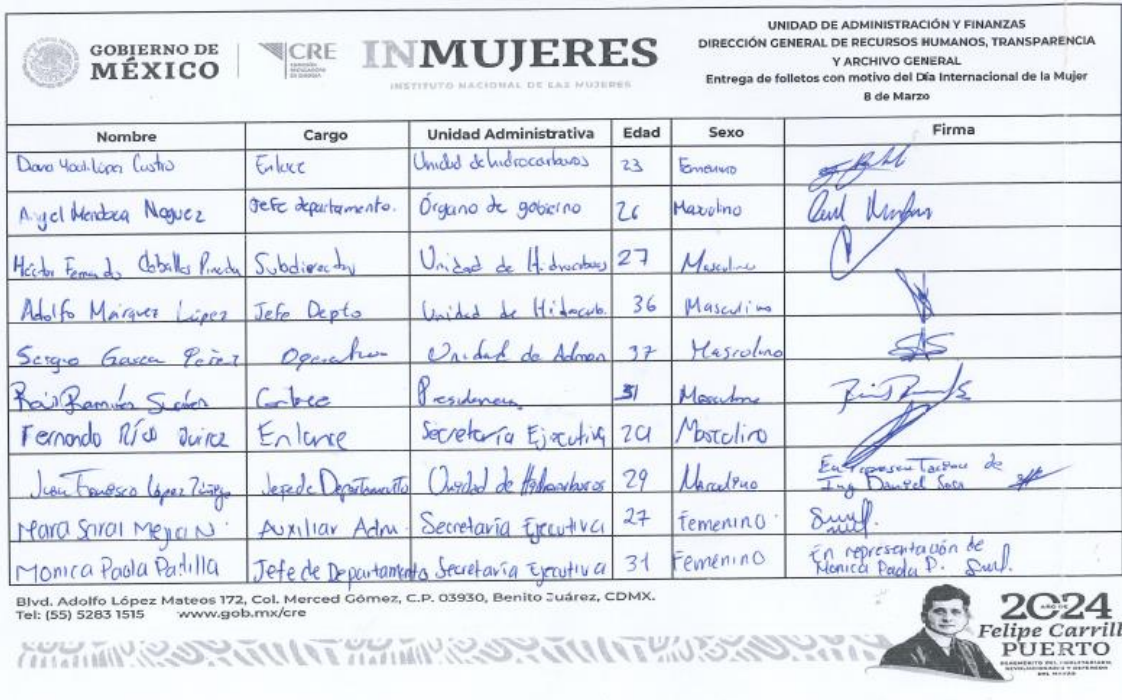 GOBIERNO DE
MÉXICO
CRE
COMISIÓN
REGULADORA
DE ENERGÍA
INMUJERES
INSTITUTO NACIONAL DE LAS MUJERES
UNIDAD DE ADMINISTRACIÓN Y FINANZAS
DIRECCIÓN GENERAL DE RECURSOS HUMANOS, TRANSPARENCIA
Y ARCHIVO GENERAL
Entrega de folletos con motivo del Día Internacional de la Mujer
8 de Marzo
Nombre Cargo Unidad Administrativa Edad Sexo Firma
López Castro Enlace Unidad de hidrocarburos 23 Femenino
Angel Mendoza Noguez Jefe departamento. Órgano de gobierno 26 Masculino
Héctor Fernando Ceballos Pineda Subdirector Unidad de Hidrocarburos 27 Masculino
Adolfo Márquez López Jefe Depto Unidad de Hidrocarb. 36 Masculino
Sergio García Pérez Operativo Unidad de Admon 37 Masculino
Raúl Ramírez Enlace Presidencia 31 Masculino
Fernando Ríos Enlance Secretaría Ejecutiva 29 Masculino
Juan Francisco López Jefe de Departamento Unidad de Hidrocarburos 29 Masculino En representación de
Ing Daniel Sosa
Mara Mejía N. Auxiliar Adm. Secretaría Ejecutiva 27 Femenino
Monica Paola Padilla Jefe de Departamento Secretaría Ejecutiva 31 Femenino En representación de
Monica Paola P.
Blvd. Adolfo López Mateos 172, Col. Merced Gómez, C.P. 03930, Benito Juárez, CDMX.
Tel: (55) 5283 1515 www.gob.mx/cre
2024
AÑO DE
Felipe Carrill
PUERTO
BENEMÉRITO DEL PROLETARIADO,
REVOLUCIONARIO Y DEFENSOR
DEL MAYAB